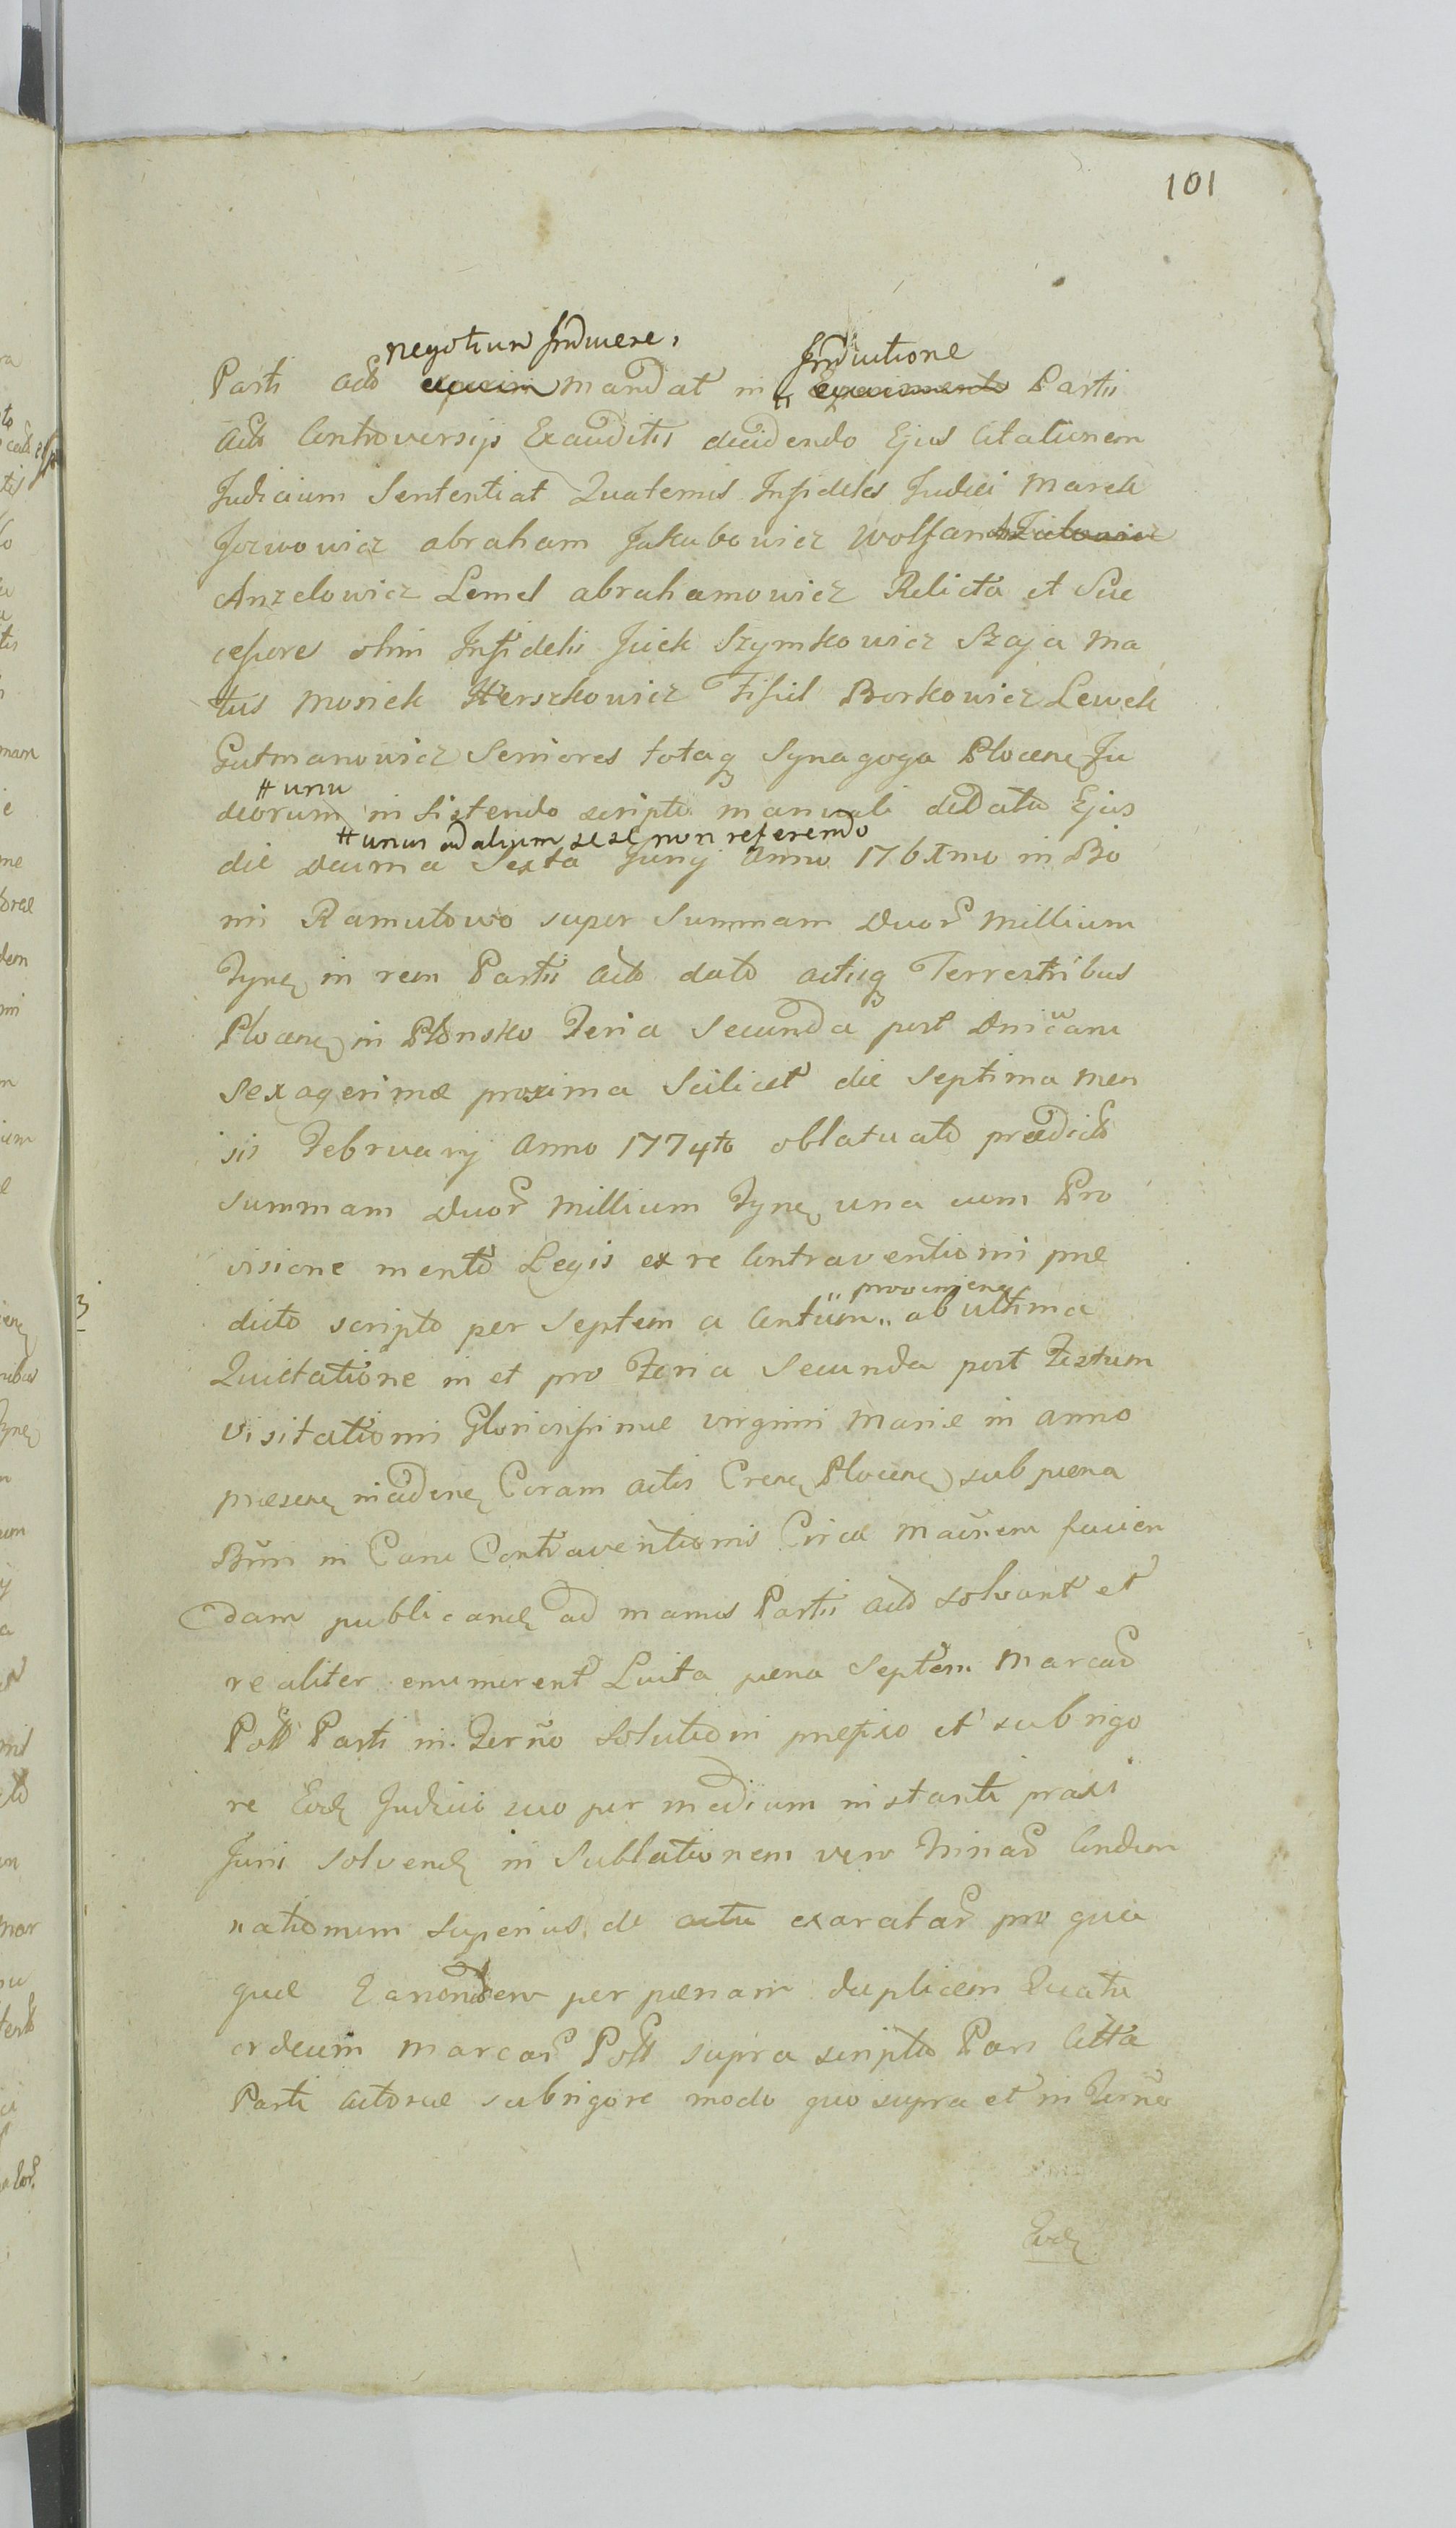 101
negotium Inducere, Inductione
Parti acto mandat in Partis
acto Controversijs Exauditis decidendo Ejus Citationem
Judicium Sententiat Quatenus Infideles Judei Marek
Jozwowicz abraham Jakubowicz Wolfan
Anzelowicz Lemel abrahamowicz Relicta et Suc
cessores olim Infidelis Jcick Szymkowicz Szaja Ma
tus Mosiek Herszkowicz Fiszel Borkowicz Lewek
Gutmanowicz Seniores totaq Synagoga Plocens Ju
# unu
deorum in Sistendo scripto manuali de data Ejus
# unus ad alium sese non referendo
die decima Sexta Junij Anno 176Xmo in Bo
nis Ramutowo super Summam Duor Millium
fynor in rem Partis acto dato actisq Terrestribus
Plocens in Plonsko Feria Secunda post Dnicam
Sexagesimæ proxima Scilicet die Septima Men
sis February Anno 1774to oblatuato prædicto
Summam Duor Millium fynor una cum Pro
visione mento Legis ex re Contraventionis præ
provenien
dicto scripto per Septem a Centum ab ultima
Quietatione in et pro Feria Secunda post Festum
Visitationis Gloriosissimæ virginis Mariæ in anno
præsen inciden Coram actis Cren Plocen sub pæna
Bnni in Cau Contraventionis Circa facien
dam publicand ad manus Partis acto solvant et
realiter enumerent Luita pæna Septem Marcar
Poll Parti in Termo solutionis præfixo et sub rigo
re Eod Judicii suo per medium instantis praxi
Juris solvend in Sublationem vero Trinar Condem
nationum superius de actu exaratar pro qua
que Earundem per pænam duplicem Quatu
ordecim Marcar Poll supra scripto Pars Citta
Parti actoreæ sub rigore modo quo supra et in Termo
Eod